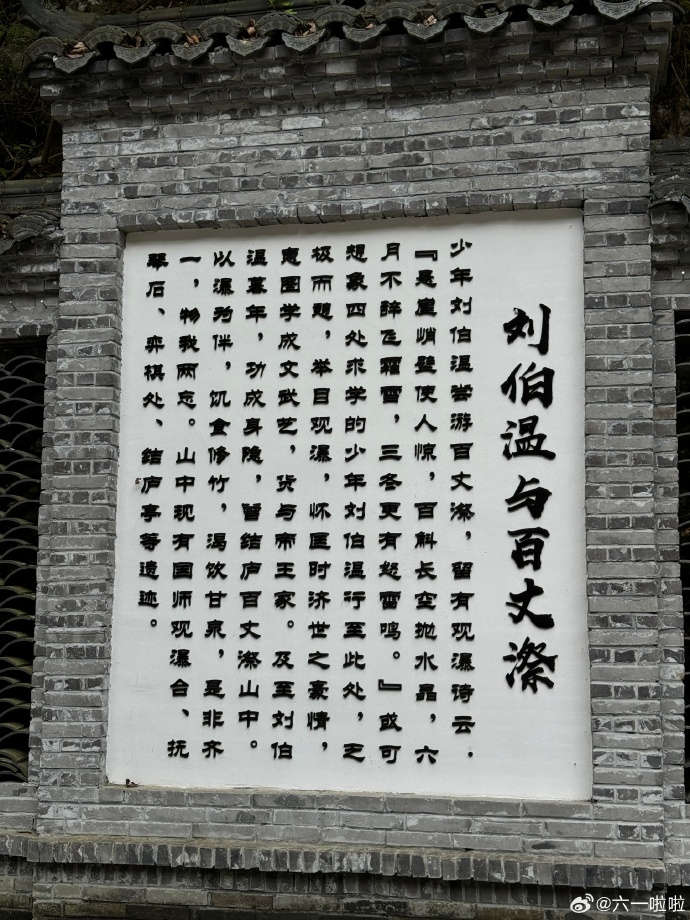 刘伯温与百丈漈
少年刘伯温尝游百丈漈，留有观瀑诗云．
『悬崖峭壁使人惊，百斛长空抛水晶，六
月不辞飞霜雪，三冬更有怒雷鸣。』或可
想象四处求学的少年刘伯温行至此处，乏
极而憩，举目观瀑，怀匡时济世之豪情，
意图学成文武艺，货与帝王家。及至刘伯
温暮年，功成身隐，曾结庐百丈漈山中。
以瀑为伴，饥食修竹，渴饮甘泉，是非齐
一，物我两忘。山中现有国师观瀑台、抚
琴石、弈棋处、结庐亭等遗迹。
@六一啦啦